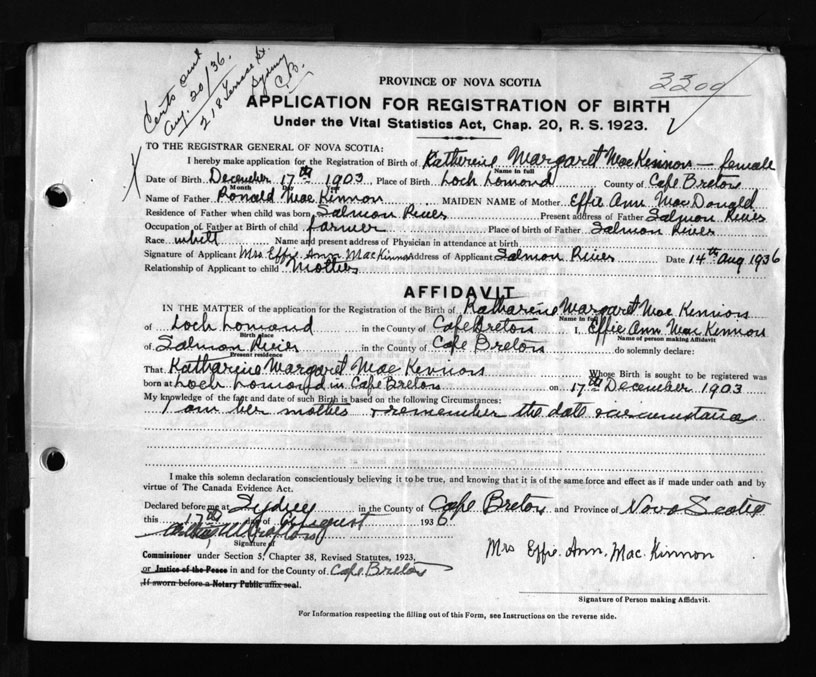 Aug. 20/36.
Sydney
C.B.
3300
PROVINCE OF NOVA SCOTIA
APPLICATION FOR REGISTRATION OF BIRTH
Under the Vital Statistics Act, Chap. 20, R. S. 1923.
TO THE REGISTRAR GENERAL OF NOVA SCOTIA:
I hereby make application for the Registration of Birth of Katherine Margaret MacKinnon — female
Name in full
Date of Birth December 17th 1903 Place of Birth Loch Lomond County of Cape Breton
Month Day Year
Name of Father Ronald MacKinnon MAIDEN NAME of Mother Effie Ann MacDonald
Residence of Father when child was born Salmon River Present address of Father Salmon River
Occupation of Father at Birth of child farmer Place of birth of Father Salmon River
Race white Name and present address of Physician in attendance at birth
Signature of Applicant Mrs. Effie. Ann. MacKinnon Address of Applicant Salmon River Date 14th Aug 1936
Relationship of Applicant to child Mother
AFFIDAVIT
IN THE MATTER of the application for the Registration of the Birth of Katharine Margaret MacKinnon
Name in full
of Loch Lomond in the County of Cape Breton I, Effie Ann MacKinnon
Birth place Name of person making Affidavit
of Salmon River in the County of Cape Breton do solemnly declare:
Present residence
That Katharine Margaret MacKinnon Whose Birth is sought to be registered was
born at Loch Lomond in Cape Breton on 17th December 1903
My knowledge of the fact and date of such Birth is based on the following Circumstances:
I am her mother & remember the date & circumstances
I make this solemn declaration conscientiously believing it to be true, and knowing that it is of the same force and effect as if made under oath and by
virtue of The Canada Evidence Act.
Declared before me at Sydney in the County of Cape Breton and Province of Nova Scotia
this 17th day of August 1936
Signature of
Commissioner under Section 5, Chapter 38, Revised Statutes, 1923,
or Justice of the Peace in and for the County of Cape Breton
If sworn before a Notary Public affix seal.
Mrs Effie. Ann. Mac. Kinnon
Signature of Person making Affidavit.
For Information respecting the filling out of this Form, see Instructions on the reverse side.